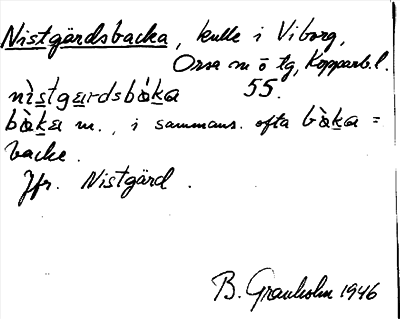 Nistgärdsbacka, kulle i Viborg,
Orsa sn o tg, Kopparb. l.
nìstgardsbàka 55.
bàka m., i sammans. ofta bàka =
backe.
Jfr. Nistgärd.
B. Granholm 1946